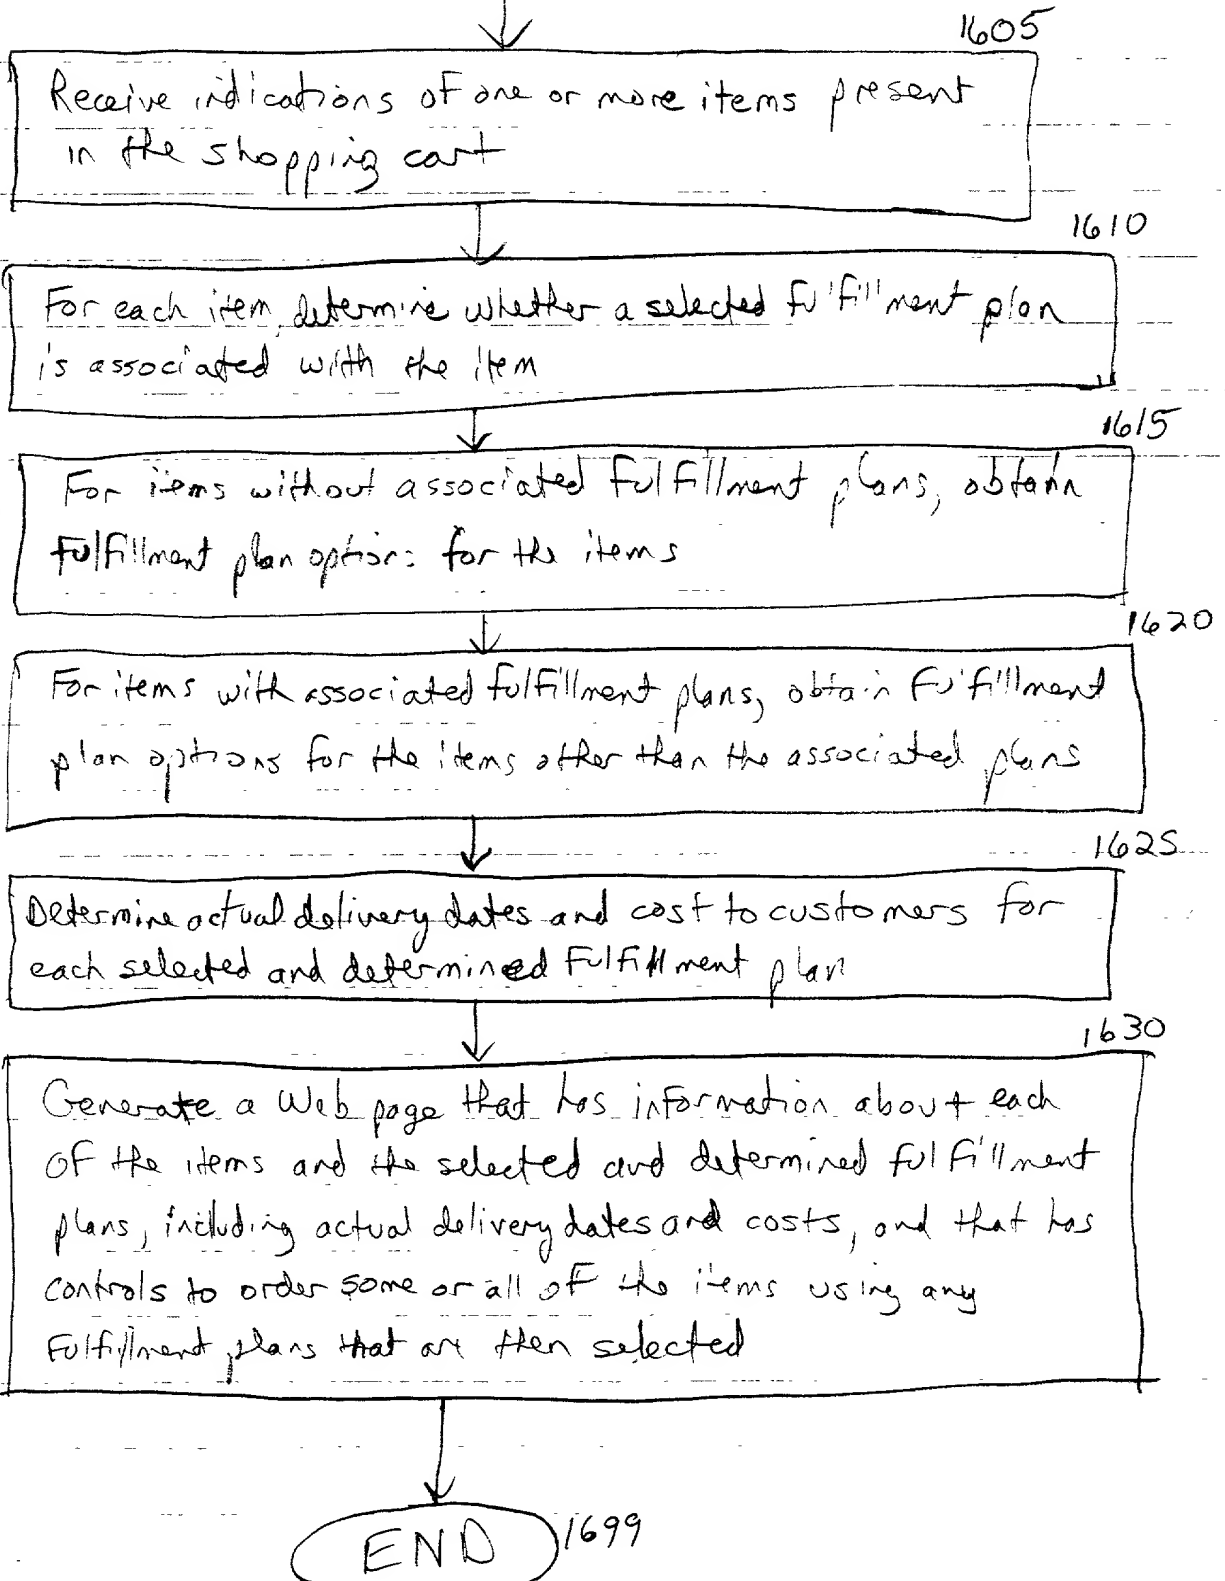 1605
Receive indications of one or more items present
in the shopping cart
1610
For each item, determine whether a selected fulfillment plan
is associated with the item
1615
For items without associated fulfillment plans, obtain
fulfillment plan options for the items
1620
For items with associated fulfillment plans, obtain fulfillment
plan options for the items other than the associated plans
1625
Determine actual delivery dates and cost to customers for
each selected and determined fulfillment plan
1630
Generate a Web page that has information about each
of the items and the selected and determined fulfillment
plans, including actual delivery dates and costs, and that has
controls to order some or all of the items using any
fulfillment plans that are then selected
END 1699